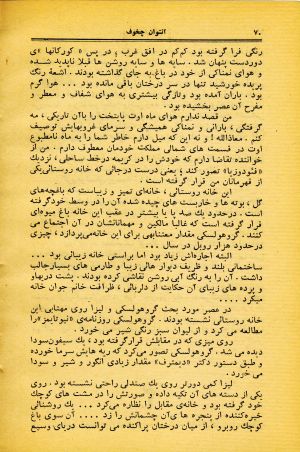 ۷۰ آنتوان چخوف
رنگی فرا گرفته بود کم‌کم در افق غرب ، در پس « کورکانها »ی
دوردست پنهان شد . سایه ها و سایه روشن ها قبلا ناپدید شده
و هوای نمناکی از خود در باغ‌بجای گذاشته بودند . اشعهٔ رنگ
پریدهٔ خورشید تنها در سر درختان باقی مانده بود ... هوا گرم
بود . باران آمده بود وتازگی بیشتری به هوای شفاف و معطر و
مفرح آن عصر بخشیده بود .
من قصد ندارم هوای ماه اوت پایتخت را باآن تاریکی ، مه
گرفتگی ، بارانی و نمناکی همیشگی و سرمای غروبهایش توصیف
کنم . معاذالله ! و نه این که میل دارم خاطر شما را به ماه نامطبوع
اوت در قسمت های شمالی مملکت خودمان معطوف دارم . من از
خواننده تقاضا دارم که خودش را در کریمه درخط ساحلی ، نزدیك
« فئودوزیا» تصور کند ، یعنی درست درجائی که خانه روستائی‌یکی
از قهرمانان من قرار گرفته است .
این خانه روستائی ، خانه‌ای تمیز و زیباست که باغچه‌های
گل ، بوته ها و خاربست های چیده شده آن را در وسط خود‌گرفته
است . درحدود یك صد پا یا بیشتر در عقب این خانه باغ میوه‌ای
قرار گرفته است که غالبا مالکین و مهمانانشان در آن اجتماع می
کنند . گروهولسکی مقدار معتنابهی برای این خانه‌می‌پردازد ، چیزی
درحدود هزار روبل در سال ...
البته اجاره‌اش زیاد بود اما خانه زیبائی بود ...
ساختمانی بلند و ظریف دیوار های زیبا و طارمی های بسیارجالب
داشت . آن را به رنگ آبی روشن نقاشی کرده بودند . پشت دریها
و پرده های زیبای آن حکایت از دلربائی ، ظرافت خانم جوان خانه
میکرد ....
در عصر مورد بحث گروهولسکی و لیزا روی مهتابی این
خانه روستائی نشسته بودند . گروهولسکی روزنامه‌ی «نیوتایمز» را
مطالعه می کرد و از لیوان سبز رنگی شیر می خورد .
روی میزی که در مقابلش قرارگرفته بود ، یك سیفون‌سودا
دیده می شد . گروهولسکی تصور می‌کرد که به ریه‌هایش سرما خورده
و طبق دستور دکتر «دیمترف» مقدار زیادی انگور و شیر و سودا
می خورد .
لیزا کمی دورتر روی یك صندلی راحتی نشسته بود . روی
یکی از دسته های آن تکیه داده و صورتش را در مشت های کوچك
خود گرفته بود و خانه‌ی مقابل را نظاره می‌کرد ... یك روشنائی
خیره‌کننده از پنجره های آن چشمانش را زد .... آن سوی باغ
کوچك روبرو ، از میان درختان پراکنده می توانست دریای وسیع